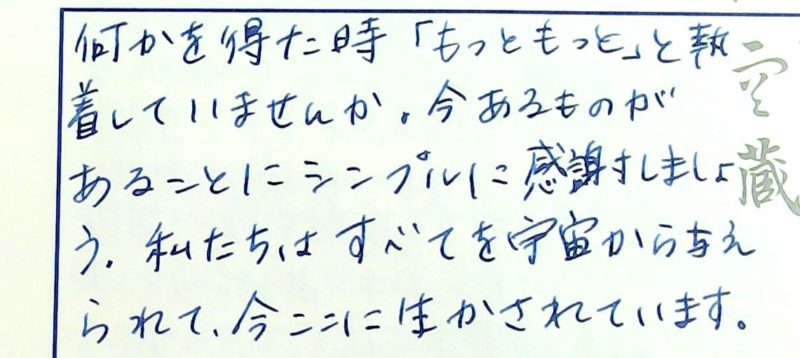 何かを得た時「もっともっと」と執
着していませんか。今あるものが
あることにシンプルに感謝しましょ
う。私たちはすべてを宇宙から与え
られて、今ここに生かされています。
空
蔵